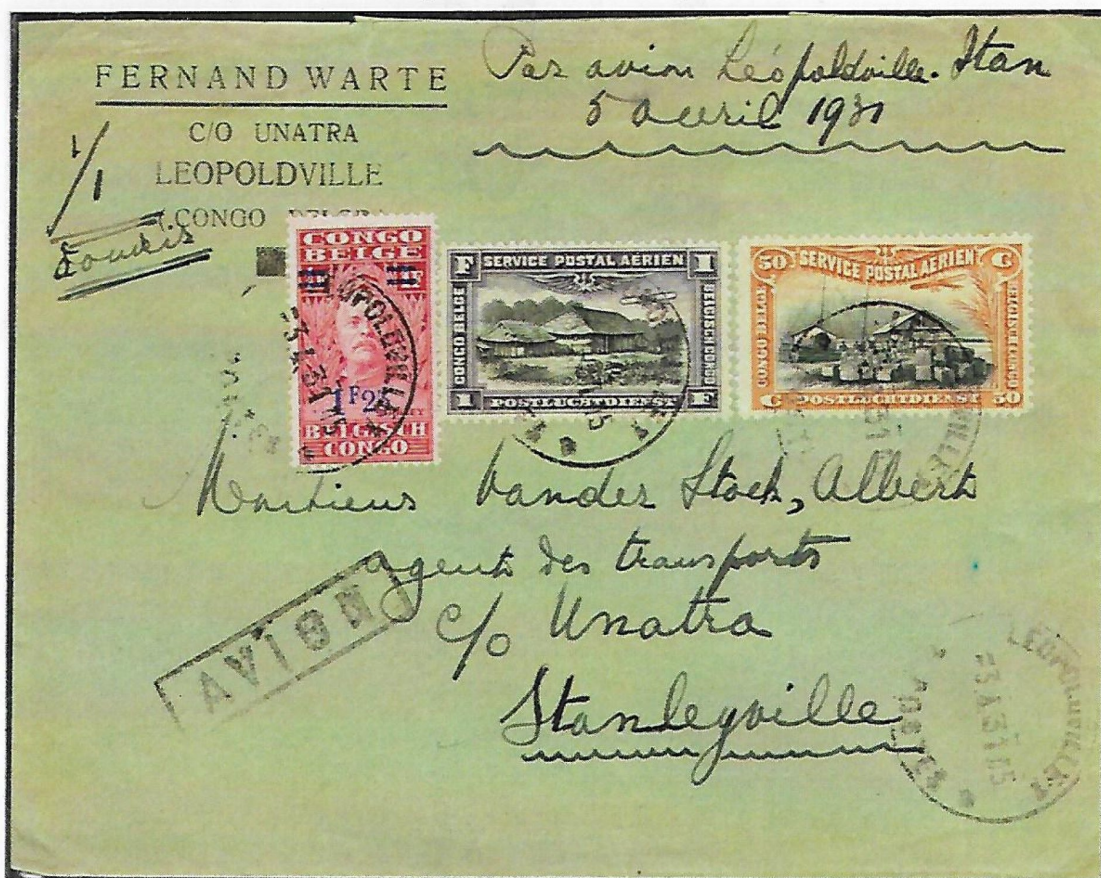 FERNAND WARTE
C/O UNATRA
LEOPOLDVILLE
CONGO
Par avion Léopoldville. Stan
5 avril 1931
1/1
CONGO
BELGE
1F25
BELGISCH
CONGO
F SERVICE POSTAL AÉRIEN 1
CONGO BELGE
BELGISCH CONGO
1 POSTLUCHTDIENST F
50 SERVICE POSTAL AERIEN C
CONGO BELGE
BELGISCH CONGO
C POSTLUCHTDIENST 50
LEOPOLDVILLE
-3.4.31 15
Monsieur Vander Stock, Albert
agent des transports
c/o Unatra
Stanleyville
AVION
LEOPOLDVILLE 1
-3.4.31 15
* POSTES *